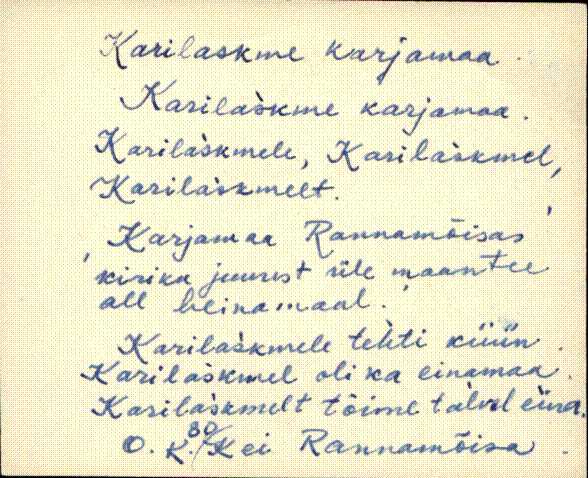 Karilaskme karjamaa
Karilàskme karjamaa.
Karilàskmele, Karilàskmel,
Karilàskmelt.
Karjamaa Rannamõisas
kirika juurest üle maantee
all heinamaal.
Karilàskmele tehti küün.
Karilàskmel oli ka einamaa.
Karilàskmelt tõime talvel eina.
O. K. 80 Kei Rannamõisa.